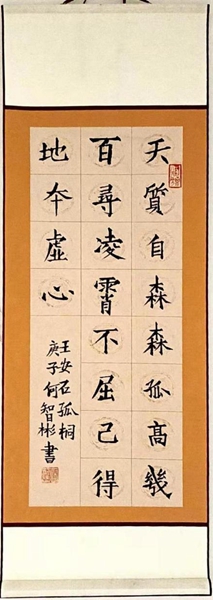 天質自森森孤高幾
百尋凌霄不屈己得
地夲虛心
王安石孤桐
庚子何智彬書